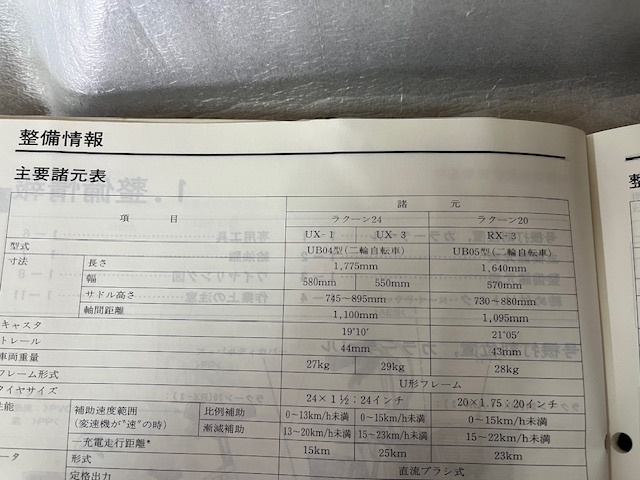 整備情報
主要諸元表
項 目 諸 元
ラクーン24 ラクーン20
UX-1 UX-3 RX-3
型式 UB04型(二輪自転車) UB05型(二輪自転車)
寸法 長さ 1,775mm 1,640mm
幅 580mm 550mm 570mm
サドル高さ 745~895mm 730~880mm
軸間距離 1,100mm 1,095mm
キャスタ 19°10′ 21°05′
トレール 44mm 43mm
車両重量 27kg 29kg 28kg
フレーム形式 U形フレーム
タイヤサイズ 24×1½:24インチ 20×1.75:20インチ
性能 補助速度範囲 比例補助 0~13km/h未満 0~15km/h未満 0~15km/h未満
(変速機が“速”の時) 漸減補助 13~20km/h未満 15~23km/h未満 15~22km/h未満
一充電走行距離* 15km 25km 23km
ータ 形式 直流ブラシ式
定格出力